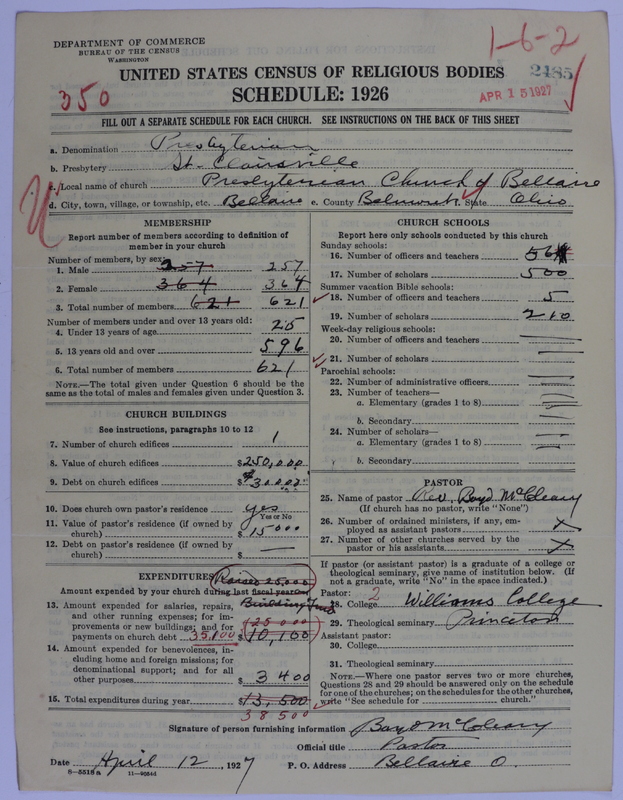 DEPARTMENT OF COMMERCE
BUREAU OF THE CENSUS
WASHINGTON
1-6-2
2485
350
APR 15 1927
UNITED STATES CENSUS OF RELIGIOUS BODIES
SCHEDULE: 1926
FILL OUT A SEPARATE SCHEDULE FOR EACH CHURCH. SEE INSTRUCTIONS ON THE BACK OF THIS SHEET
a. Denomination Presbyterian
b. Presbytery St. Clairsville
c. Local name of church Presbyterian Church of Bellaire
d. City, town, village, or township, etc. Bellaire e. County Belmont State Ohio
MEMBERSHIP
Report number of members according to definition of
member in your church
Number of members, by sex:
1. Male 257 257
2. Female 364 364
3. Total number of members 621 621
Number of members under and over 13 years old:
4. Under 13 years of age 25
5. 13 years old and over 596
6. Total number of members 621
NOTE.—The total given under Question 6 should be the
same as the total of males and females given under Question 3.
CHURCH BUILDINGS
See instructions, paragraphs 10 to 12
7. Number of church edifices 1
8. Value of church edifices $250,000
9. Debt on church edifices $
10. Does church own pastor's residence yes
Yes or No
11. Value of pastor's residence (if owned by
church) $15000
12. Debt on pastor's residence (if owned by
church) $ —
EXPENDITURES Raised 25,000
Amount expended by your church during last fiscal year on
Building Fund
13. Amount expended for salaries, repairs,
and other running expenses; for im-
provements or new buildings; and for (25000)
payments on church debt 35,100 $10,100
14. Amount expended for benevolences, in-
cluding home and foreign missions; for
denominational support; and for all
other purposes $3400
15. Total expenditures during year $13,500
38500
CHURCH SCHOOLS
Report here only schools conducted by this church
Sunday schools:
16. Number of officers and teachers 56
17. Number of scholars 500
Summer vacation Bible schools:
18. Number of officers and teachers 5
19. Number of scholars 210
Week-day religious schools:
20. Number of officers and teachers —
21. Number of scholars —
Parochial schools:
22. Number of administrative officers —
23. Number of teachers—
a. Elementary (grades 1 to 8) —
b. Secondary —
24. Number of scholars—
a. Elementary (grades 1 to 8) —
b. Secondary —
PASTOR
25. Name of pastor Rev. Boyd McCleary
(If church has no pastor, write "None")
26. Number of ordained ministers, if any, em-
ployed as assistant pastors x
27. Number of other churches served by the
pastor or his assistants x
If pastor (or assistant pastor) is a graduate of a college or
theological seminary, give name of institution below. (If
not a graduate, write "No" in the space indicated.)
Pastor: 2
28. College Williams College
29. Theological seminary Princeton
Assistant pastor:
30. College
31. Theological seminary
NOTE.—Where one pastor serves two or more churches,
Questions 28 and 29 should be answered only on the schedule
for one of the churches; on the schedules for the other churches,
write "See schedule for church."
Signature of person furnishing information Boyd McCleary
Official title Pastor
Date April 12, 1927 P. O. Address Bellaire O.
8—5518a 11—9054d